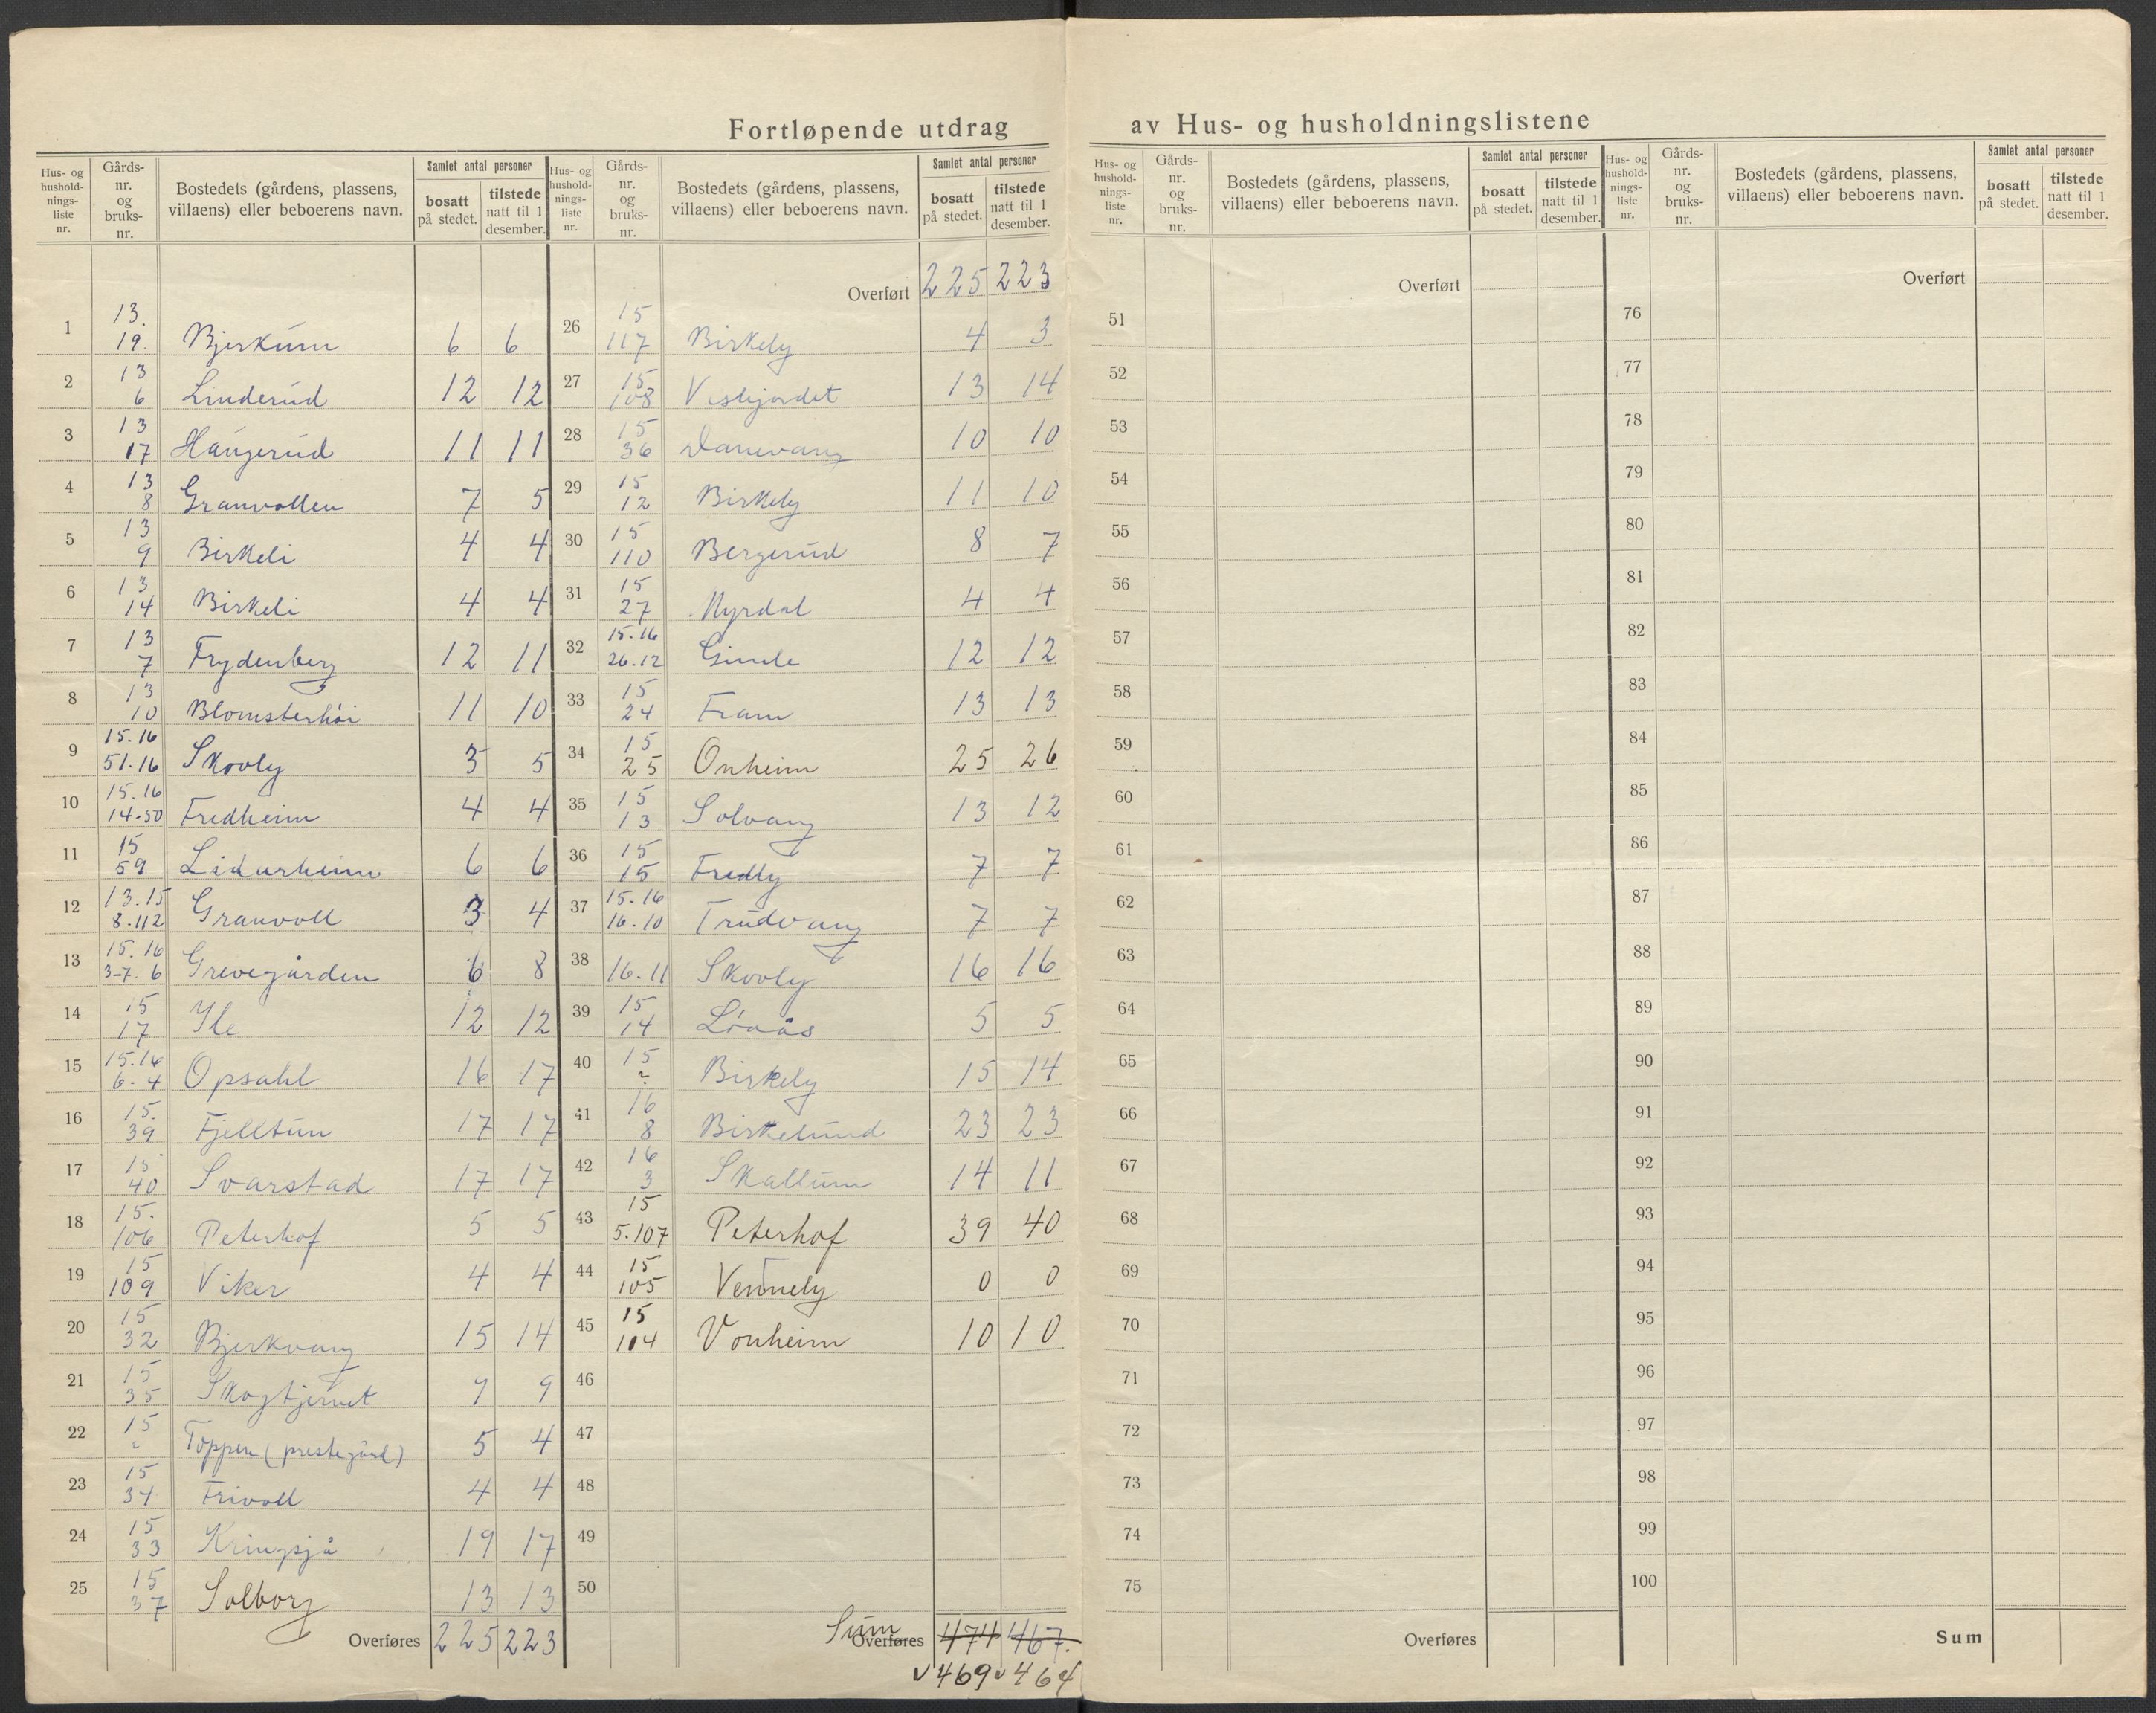 Fortløpende utdrag av Hus- og husholdningslistene
Hus- og husholdningsliste nr. Gårdsnr. og bruksnr. Bostedets (gårdens, plassens, villaens) eller beboerens navn. Samlet antal personer bosatt på stedet. tilstede natt til 1 desember.
1 13. 19. Bjerkum 6 6
2 13 6 Linderud 12 12
3 13 17 Haugerud 11 11
4 13 8 Granvollen 7 5
5 13 9 Birkeli 4 4
6 13 14 Birkeli 4 4
7 13 7 Frydenberg 12 11
8 13 10 Blomsterhöi 11 10
9 15.16 51.16 Skovly 3 5
10 15.16 14-50 Fredheim 4 4
11 15 59 Lidarheim 6 6
12 13.15 8.112 Granvoll 3 4
13 15.16 3-7.6 Grevegården 6 8
14 15 17 Ile 12 12
15 15.16 6-4 Opsahl 16 17
16 15. 39 Fjelltun 17 17
17 15 40 Svarstad 17 17
18 15. 106 Peterhof 5 5
19 15 109 Viker 4 4
20 15 32 Bjerkvang 15 14
21 15 35 Skogtjernet 7 9
22 15 Toppen (prestegård) 5 4
23 15 34 Frivoll 4 4
24 15 33 Kringsjå 19 17
25 15 37 Solborg 13 13
Overføres 225 223
Hus- og husholdningsliste nr. Gårdsnr. og bruksnr. Bostedets (gårdens, plassens, villaens) eller beboerens navn. Samlet antal personer bosatt på stedet. tilstede natt til 1 desember.
Overført 225 223
26 15 117 Birkely 4 3
27 15 108 Vestjordet 13 14
28 15 36 Danevang 10 10
29 15 12 Birkely 11 10
30 15 110 Bergerud 8 7
31 15 27 Myrdal 4 4
32 15.16 26.12 Gimle 12 12
33 15 24 Fram 13 13
34 15 25 Onheim 25 26
35 15 13 Solvang 13 12
36 15 15 Fredly 7 7
37 15.16 16.10 Trudvang 7 7
38 16.11 Skovly 16 16
39 15 14 Lövås 5 5
40 15 ? Birkely 15 14
41 16 8 Birkelund 23 23
42 16 3 Skallum 14 11
43 15 5.107 Peterhof 39 40
44 15 105 Vennely 0 0
45 15 104 Vonheim 10 10
46
47
48
49
50
Sum Overføres 474 467.
√469 √464
Hus- og husholdningsliste nr. Gårdsnr. og bruksnr. Bostedets (gårdens, plassens, villaens) eller beboerens navn. Samlet antal personer bosatt på stedet. tilstede natt til 1 desember.
Overført
51
52
53
54
55
56
57
58
59
60
61
62
63
64
65
66
67
68
69
70
71
72
73
74
75
Overføres
Hus- og husholdningsliste nr. Gårdsnr. og bruksnr. Bostedets (gårdens, plassens, villaens) eller beboerens navn. Samlet antal personer bosatt på stedet. tilstede natt til 1 desember.
Overført
76
77
78
79
80
81
82
83
84
85
86
87
88
89
90
91
92
93
94
95
96
97
98
99
100
Sum